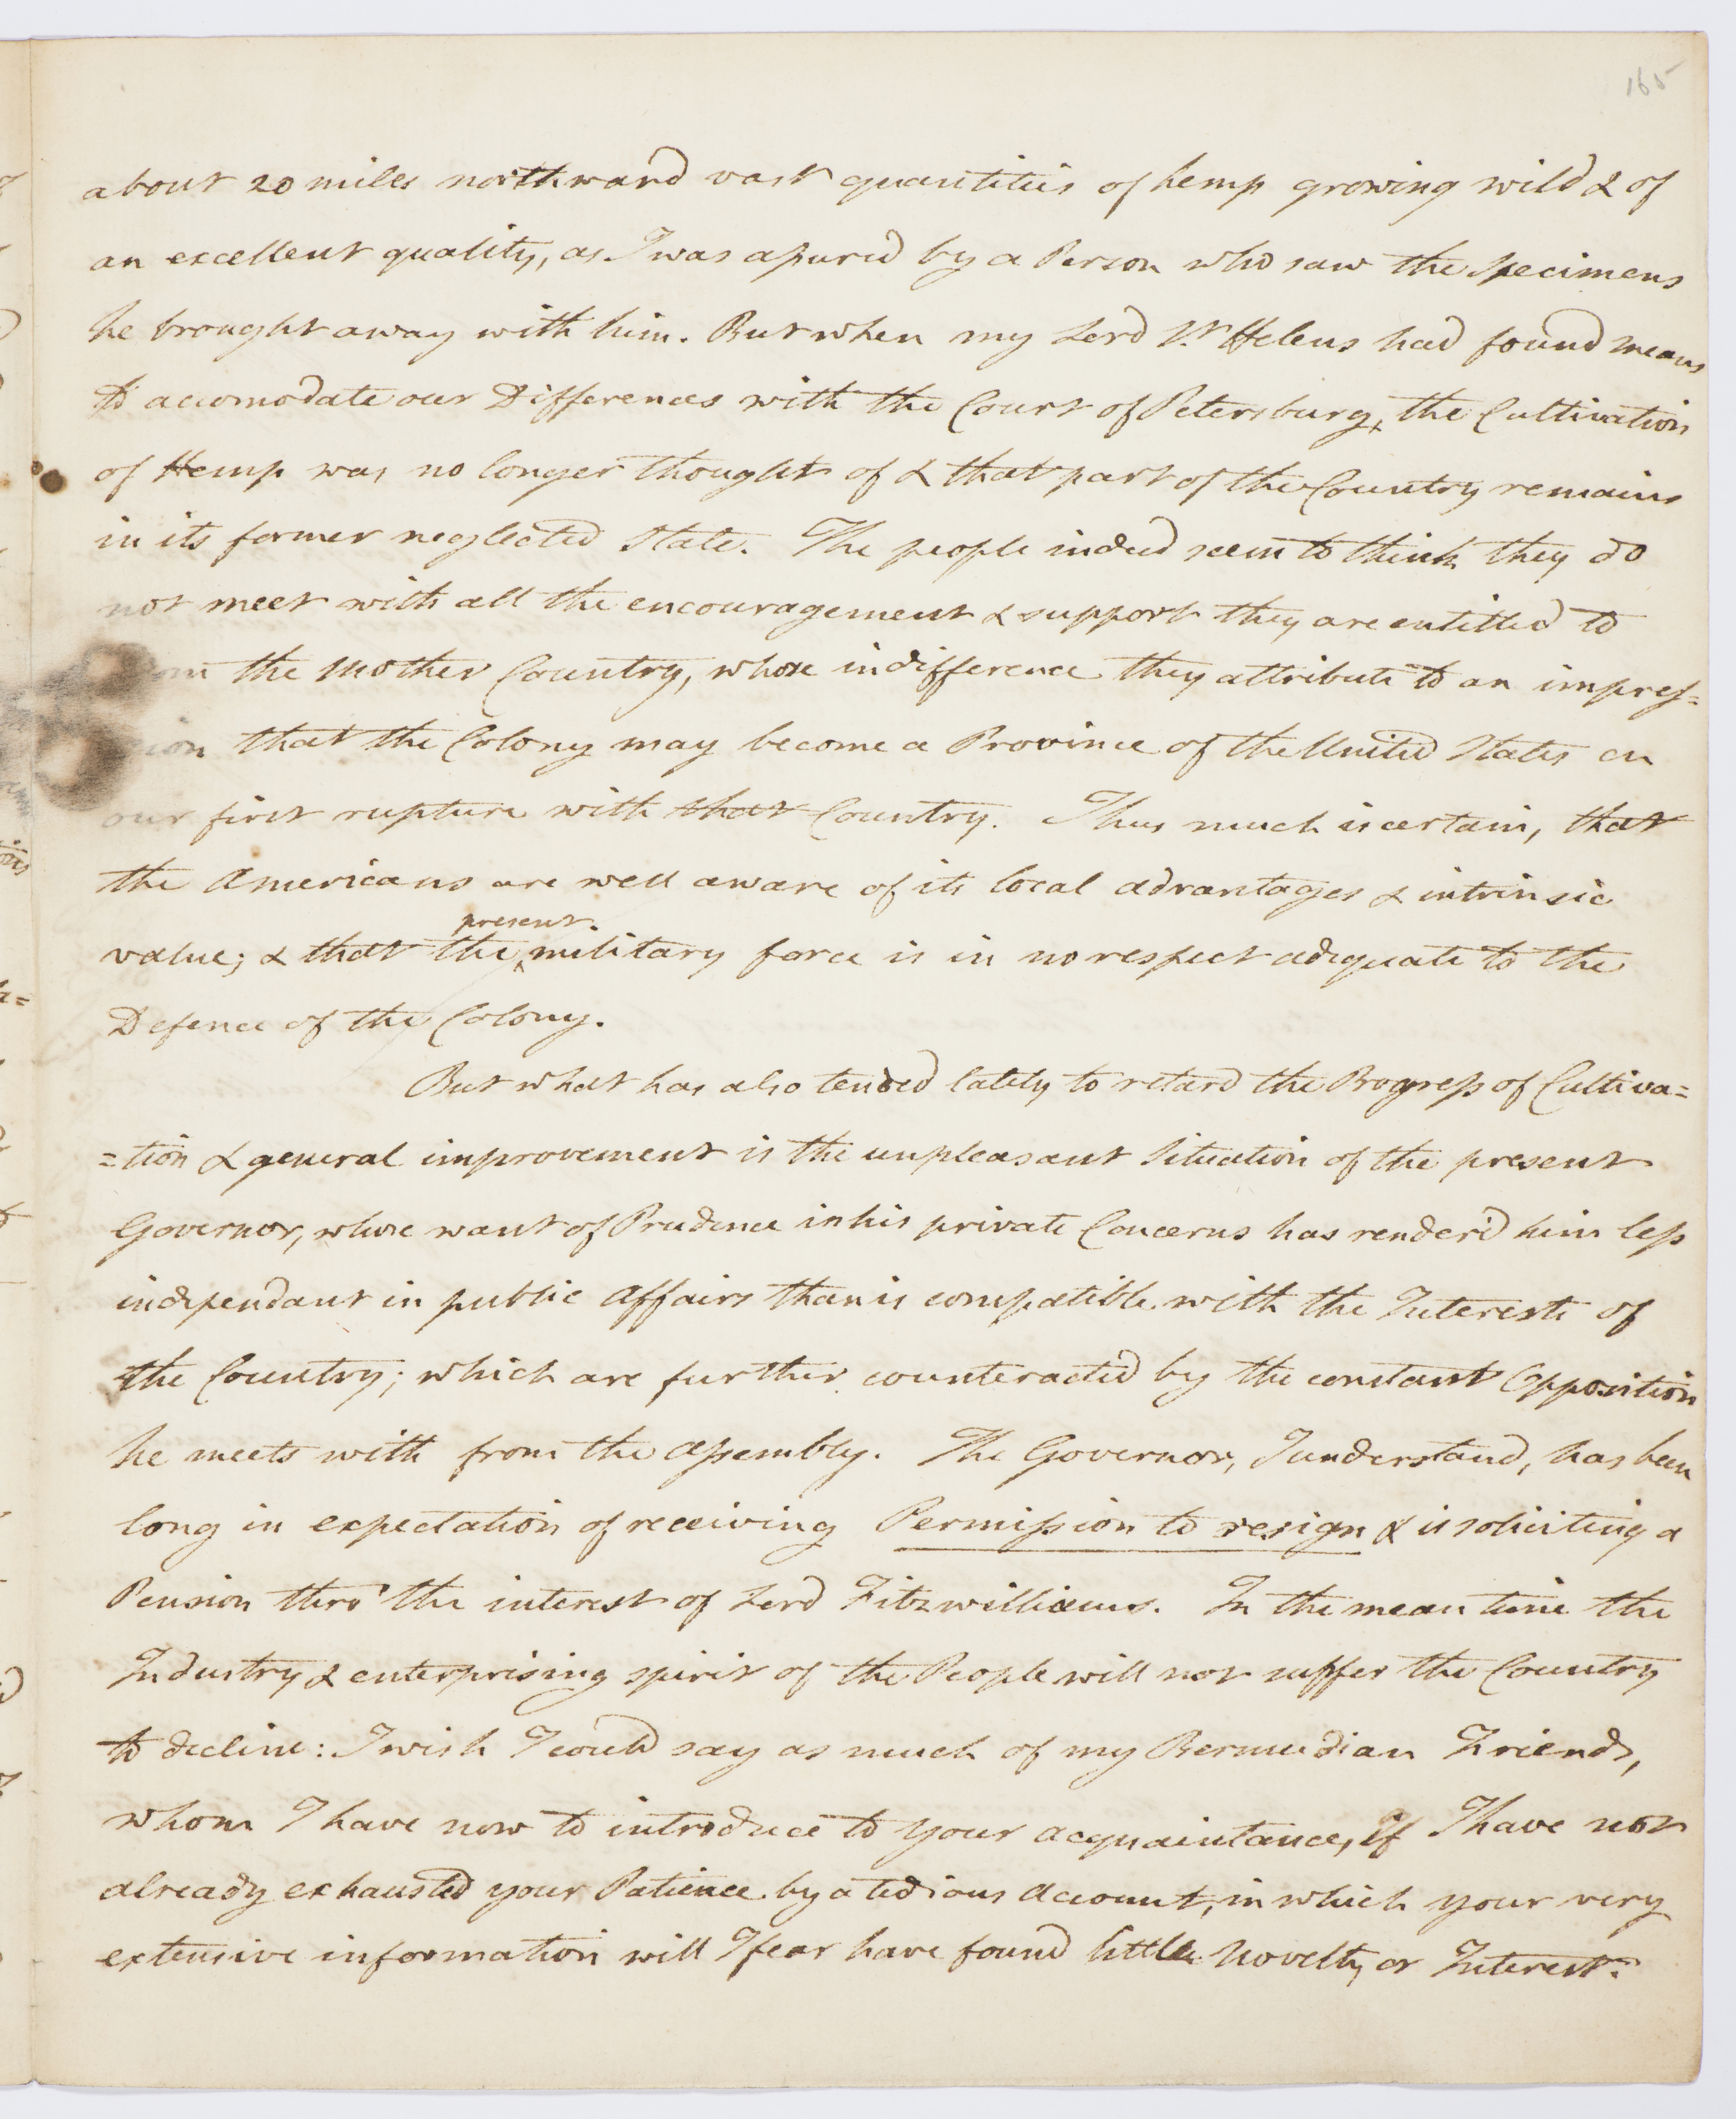 165
about 20 miles northward vast quantities of hemp growing wild & of
an excellent quality, as I was assured by a Person who saw the Specimens
he brought away with him. But when my Lord St. Helens had found means
to accomodate our Differences with the Court of Petersburg, the Cultivation
of Hemp was no longer thought of & that part of the Country remains
in its former neglected State. The people indeed seem to think they do
not meet with all the encouragement & support they are entitled to
from the Mother Country, whose indifference they attribute to an impres=
sion that the Colony may become a Province of the United States on
our first rupture with that Country. Thus much is certain, that
the Americans are well aware of its local advantages & intrinsic
present
value; & that the ^ military force is in no respect adequate to the
Defence of the Colony.
But what has also tended lately to retard the Progress of Cultiva=
=tion & general improvement is the unpleasant Situation of the present
Governor, whose want of Prudence in his private Concerns has render'd him less
independant in public Affairs than is compatible with the Interests of
the Country; which are further counteracted by the constant Opposition
he meets with from the Assembly. The Governor, I understand, has been
long in expectation of receiving Permission to resign & is soliciting a
Pension thro' the interest of Lord Fitzwilliams. In the mean time the
Industry & enterprising spirit of the People will not suffer the Country
to decline: I wish I could say as much of my Bermudian Friends,
whom I have now to introduce to your acquaintance, if I have not
already exhausted your Patience by a tedious Account, in which your very
extensive information will I fear have found little Novelty or Interest.